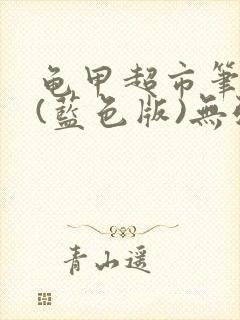 龟甲超市筆
(藍色版)無
青山遥